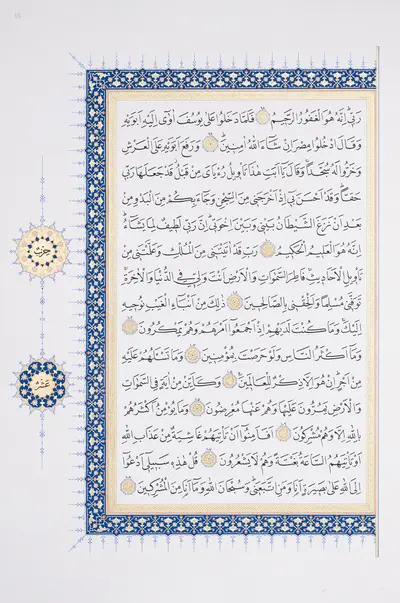 رَبِّي إِنَّهُ هُوَ الْغَفُورُ الرَّحِيمُ فَلَمَّا دَخَلُوا عَلَى يُوسُفَ آوَى إِلَيْهِ أَبَوَيْهِ
وَقَالَ ادْخُلُوا مِصْرَ إِنْ شَاءَ اللهُ آمِنِينَ وَرَفَعَ أَبَوَيْهِ عَلَى الْعَرْشِ
وَخَرُّوا لَهُ سُجَّدًا وَقَالَ يَا أَبَتِ هَذَا تَأْوِيلُ رُءْيَايَ مِنْ قَبْلُ قَدْ جَعَلَهَا رَبِّي
حَقًّا وَقَدْ أَحْسَنَ بِي إِذْ أَخْرَجَنِي مِنَ السِّجْنِ وَجَاءَ بِكُمْ مِنَ الْبَدْوِ مِنْ
بَعْدِ أَنْ نَزَغَ الشَّيْطَانُ بَيْنِي وَبَيْنَ إِخْوَتِي إِنَّ رَبِّي لَطِيفٌ لِمَا يَشَاءُ
إِنَّهُ هُوَ الْعَلِيمُ الْحَكِيمُ رَبِّ قَدْ آتَيْتَنِي مِنَ الْمُلْكِ وَعَلَّمْتَنِي مِنْ
تَأْوِيلِ الْأَحَادِيثِ فَاطِرَ السَّمَوَاتِ وَالْأَرْضِ أَنْتَ وَلِيِّي فِي الدُّنْيَا وَالْآخِرَةِ
تَوَفَّنِي مُسْلِمًا وَأَلْحِقْنِي بِالصَّالِحِينَ ذَلِكَ مِنْ أَنْبَاءِ الْغَيْبِ نُوحِيهِ
إِلَيْكَ وَمَا كُنْتَ لَدَيْهِمْ إِذْ أَجْمَعُوا أَمْرَهُمْ وَهُمْ يَمْكُرُونَ
وَمَا أَكْثَرُ النَّاسِ وَلَوْ حَرَصْتَ بِمُؤْمِنِينَ وَمَا تَسْأَلُهُمْ عَلَيْهِ
مِنْ أَجْرٍ إِنْ هُوَ إِلَّا ذِكْرٌ لِلْعَالَمِينَ وَكَأَيِّنْ مِنْ آيَةٍ فِي السَّمَوَاتِ
وَالْأَرْضِ يَمُرُّونَ عَلَيْهَا وَهُمْ عَنْهَا مُعْرِضُونَ وَمَا يُؤْمِنُ أَكْثَرُهُمْ
بِاللهِ إِلَّا وَهُمْ مُشْرِكُونَ أَفَأَمِنُوا أَنْ تَأْتِيَهُمْ غَاشِيَةٌ مِنْ عَذَابِ اللهِ
أَوْ تَأْتِيَهُمُ السَّاعَةُ بَغْتَةً وَهُمْ لَا يَشْعُرُونَ قُلْ هَذِهِ سَبِيلِي أَدْعُو
إِلَى اللهِ عَلَى بَصِيرَةٍ أَنَا وَمَنِ اتَّبَعَنِي وَسُبْحَانَ اللهِ وَمَا أَنَا مِنَ الْمُشْرِكِينَ
حزب
عشر